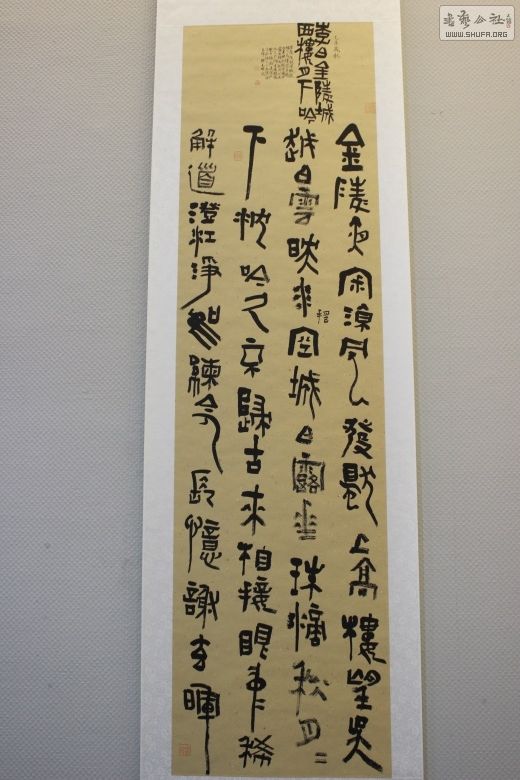 书艺公社
WWW.SHUFA.ORG
李白金陵城
西樓月下吟
金陵夜寂涼風發獨上高樓望吳
越白雲映水搖空城白露垂珠滴秋月〻
下沈吟久不歸古來相接眼中稀
解道澄江淨如練令人長憶謝玄暉